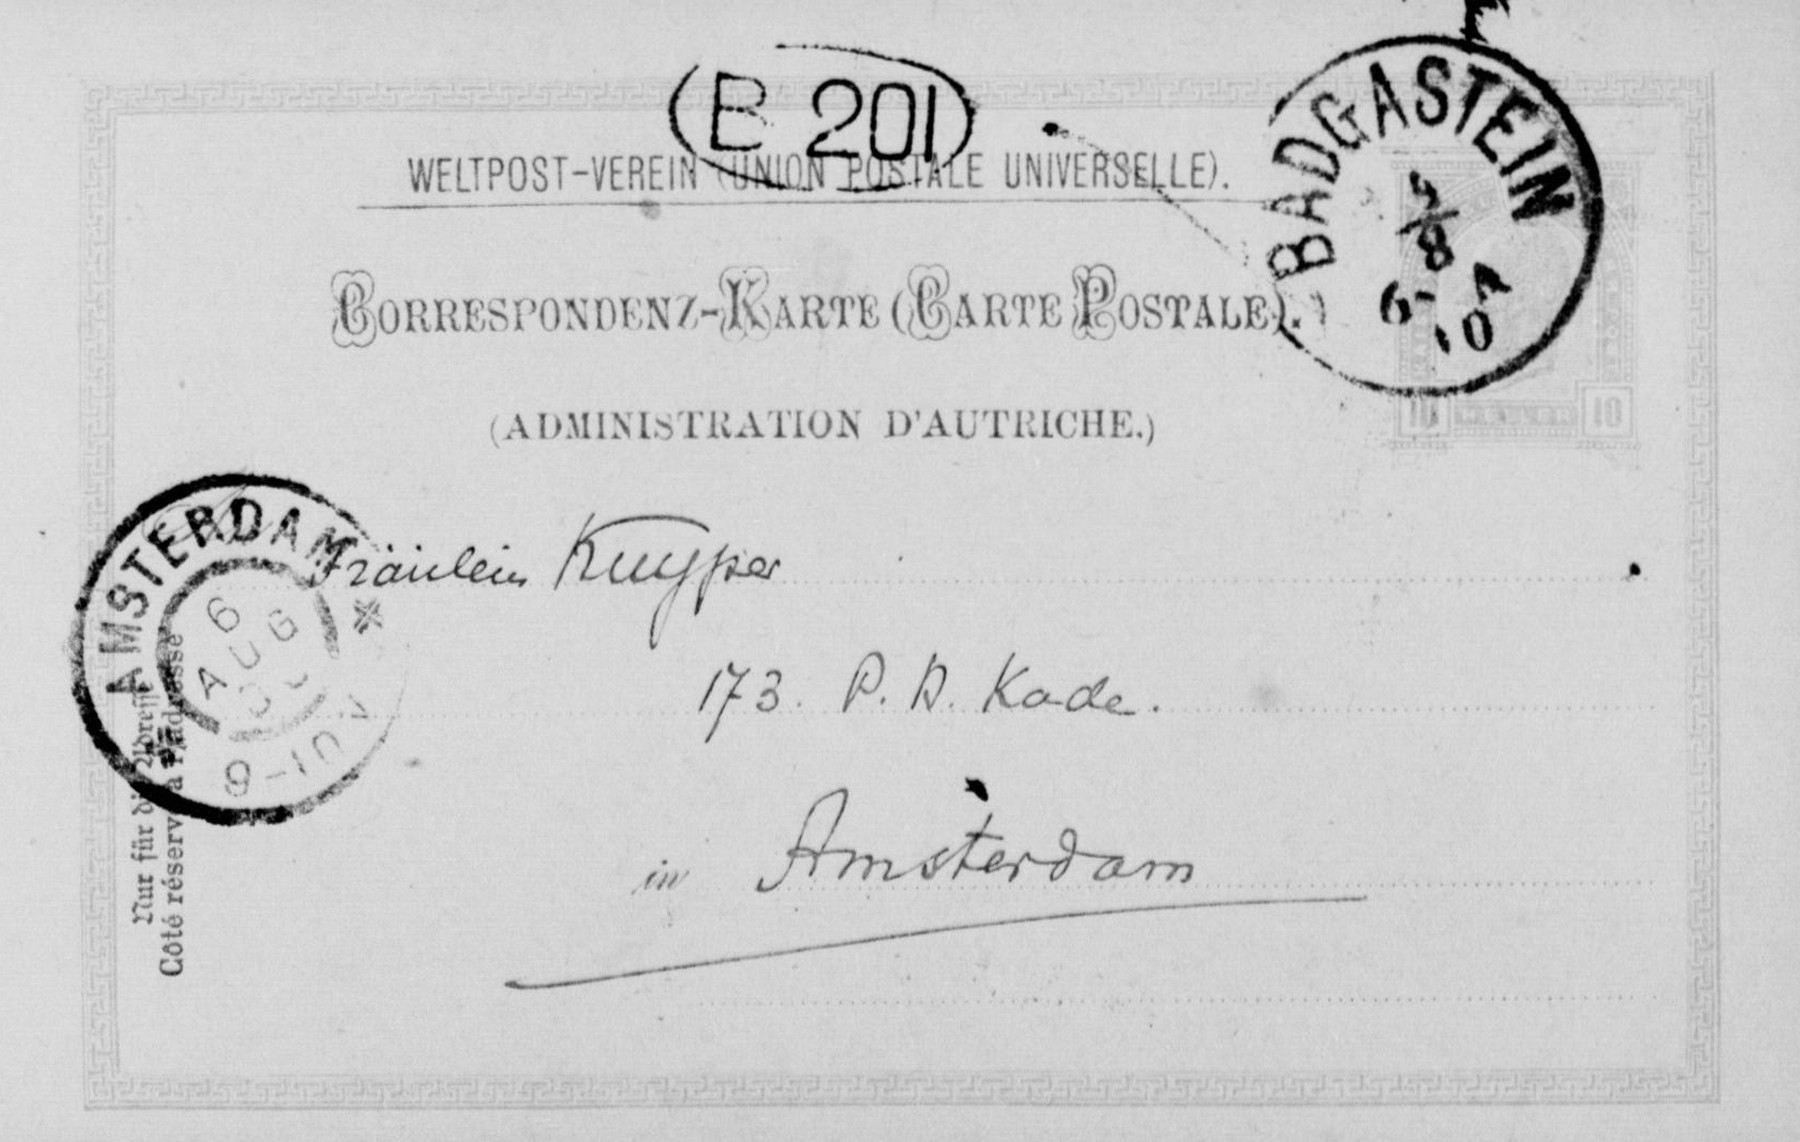 B 201
WELTPOST-VEREIN (UNION POSTALE UNIVERSELLE).
BADGASTEIN
8
6-
10
CORRESPONDENZ-KARTE (CARTE POSTALE).
(ADMINISTRATION D'AUTRICHE.)
10 HELLER 10
AMSTERDAM
6
AUG
8-10V
Fräulein Kuyper
173. P. H. Kade.
in Amsterdam
Nur für die Adresse
Côté réservé à l'adresse